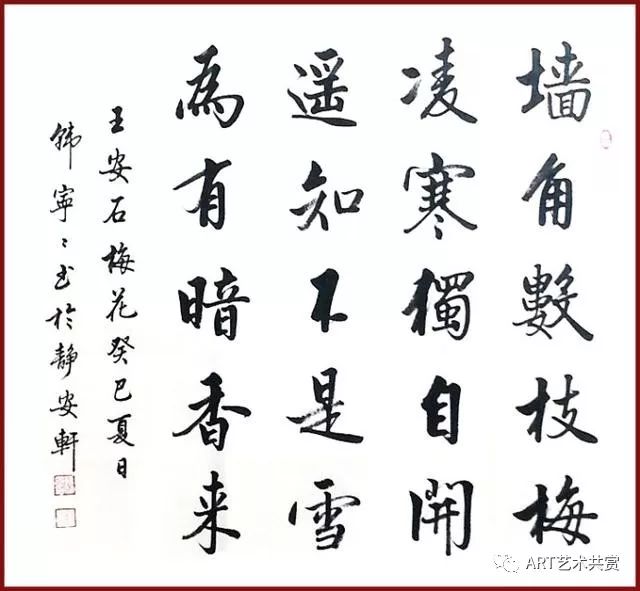 墙角数枝梅
凌寒獨自開
遥知不是雪
為有暗香来
王安石梅花癸巳夏日
韩寜〻书於静安軒
ART艺术共赏